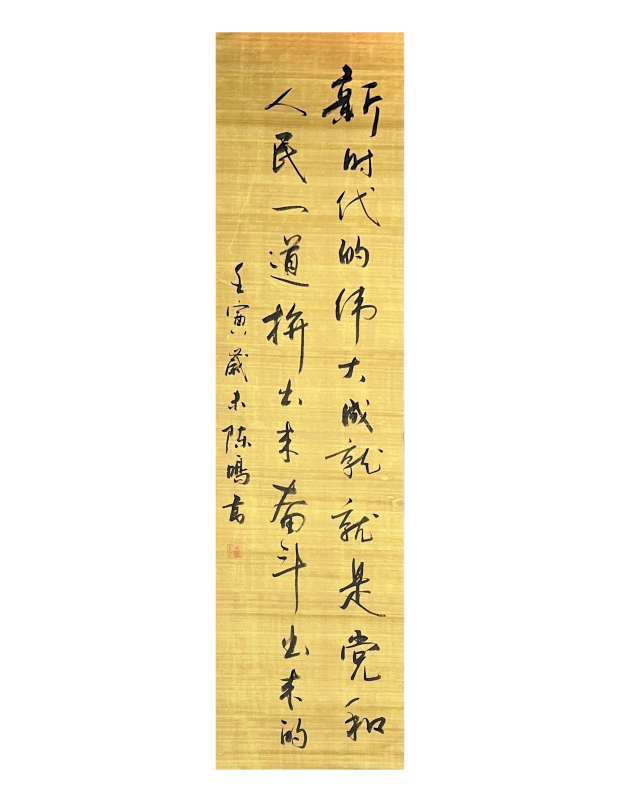 新时代的伟大成就就是党和
人民一道拚出来奋斗出来的
壬寅岁末陈鸣书